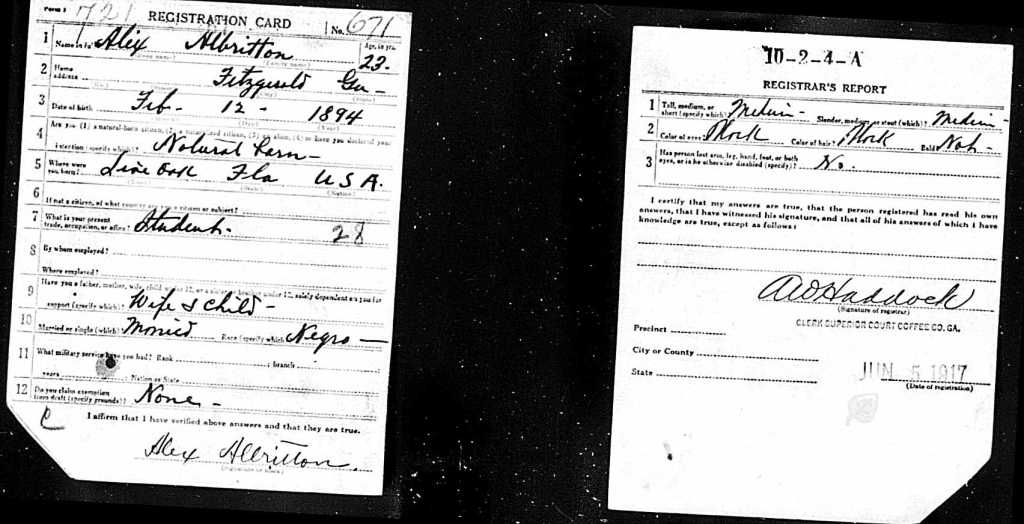 Form 1 721 REGISTRATION CARD No. 671
1 Name in full Alex Albritton Age, in yrs. 23-
(Given name) (Family name)
2 Home address Fitzgerald Ga-
(No.) (Street) (City) (State)
3 Date of birth Feb- 12- 1894
(Month) (Day) (Year)
4 Are you (1) a natural-born citizen, (2) a naturalized citizen, (3) an alien, (4) or have you declared your
intention (specify which)? Natural Born-
5 Where were you born? Live Oak Fla USA.
(Town) (State) (Nation)
6 If not a citizen, of what country are you a citizen or subject?
7 What is your present trade, occupation, or office? Student- 28
8 By whom employed?
Where employed?
9 Have you a father, mother, wife, child under 12, or a sister or brother under 12, solely dependent on you for
support (specify which)? Wife & Child-
10 Married or single (which)? Married Race (specify which)? Negro-
11 What military service have you had? Rank ; branch
years ; Nation or State
12 Do you claim exemption from draft (specify grounds)? None-
I affirm that I have verified above answers and that they are true.
Alex Albritton
(Signature or mark)
10-2-4-A
REGISTRAR'S REPORT
1 Tall, medium, or short (specify which)? Medium- Slender, medium, or stout (which)? Medium-
2 Color of eyes? Black Color of hair? Black Bald? Not-
3 Has person lost arm, leg, hand, foot, or both eyes, or is he otherwise disabled (specify)? No.
I certify that my answers are true, that the person registered has read his own
answers, that I have witnessed his signature, and that all of his answers of which I have
knowledge are true, except as follows:
A W Haddock
(Signature of registrar)
CLERK SUPERIOR COURT COFFEE CO. GA.
Precinct
City or County
State JUN 5 1917
(Date of registration)